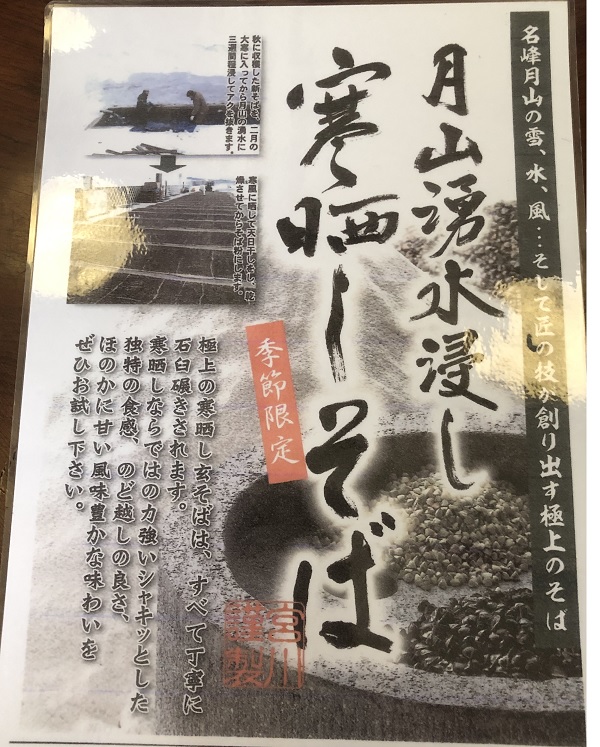 名峰月山の雪、水、風…そして匠の技が創り出す極上のそば
月山湧水浸し
寒晒しそば
季節限定
秋に収穫した新そばを、二月の
大寒に入ってから月山の湧水に
三週間程浸してアクを抜きます。
寒風に晒して天日干しをし、乾
燥させてからそば粉にします。
極上の寒晒し玄そばは、すべて丁寧に
石臼碾きされます。
寒晒しならではの力強いシャキッとした
独特の食感、のど越しの良さ、
ほのかに甘い風味豊かな味わいを
ぜひお試し下さい。
宮川
謹製